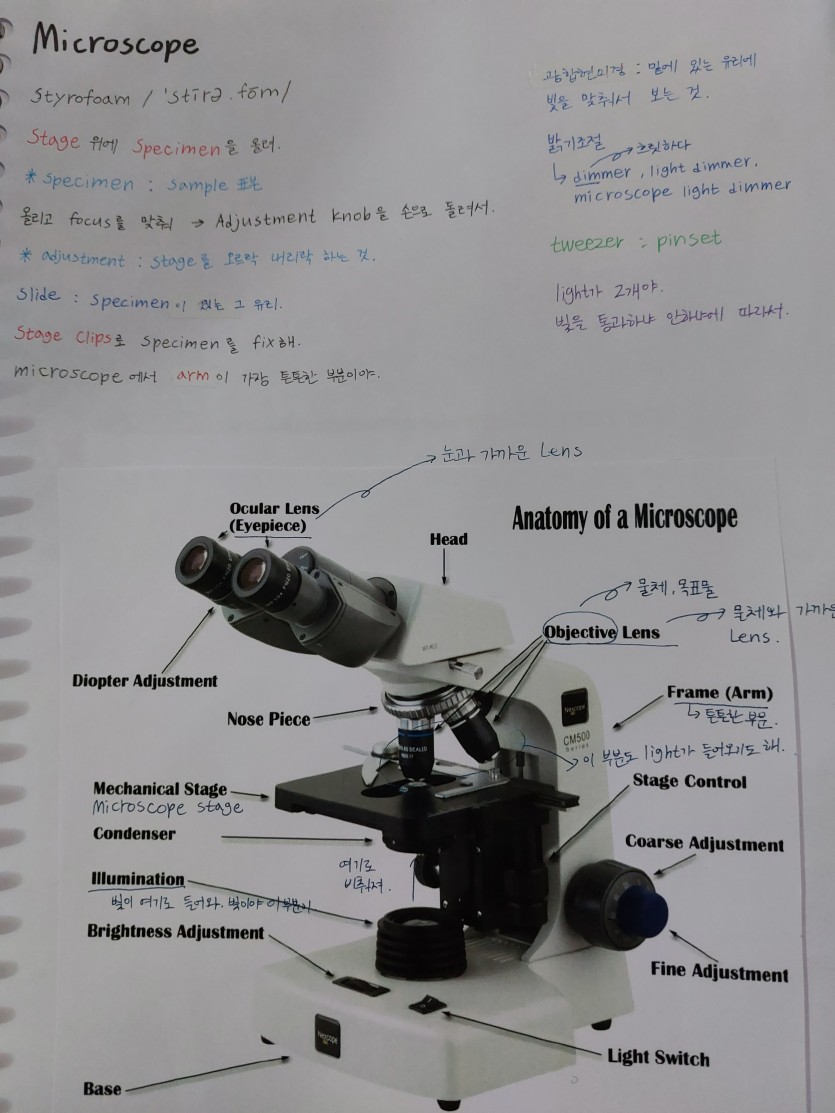 Microscope
Styrofoam / 'stīrə.fōm/
Stage 위에 Specimen을 올려.
* Specimen : Sample 표본
올리고 focus를 맞춰 → Adjustment knob을 손으로 돌려서.
* adjustment : Stage를 오르락 내리락 하는 것.
Slide : Specimen이 있는 그 유리.
Stage Clips로 Specimen를 fix해.
microscope에서 arm이 가장 튼튼한 부분이야.
광학현미경 : 밑에 있는 유리에
빛을 맞춰서 보는 것.
밝기조절
→ 흐릿하다
↳ dimmer, light dimmer,
microscope light dimmer
tweezer : pinset
light가 2개야.
빛을 통과하냐 안하냐에 따라서.
→ 눈과 가까운 Lens
Ocular Lens
(Eyepiece)
Anatomy of a Microscope
Head
→ 물체, 목표물
Objective Lens
→ 물체와 가까운
Lens.
Diopter Adjustment
Frame (Arm)
↳ 튼튼한 부분.
Nose Piece
CM500
Series
→ 이 부분도 light가 들어오기도 해.
Stage Control
Mechanical Stage
Microscope stage
Condenser
Coarse Adjustment
여기로
비춰져.
Illumination
빛이 여기로 들어와. 빛이야 이부분이
Brightness Adjustment
Fine Adjustment
Light Switch
Base